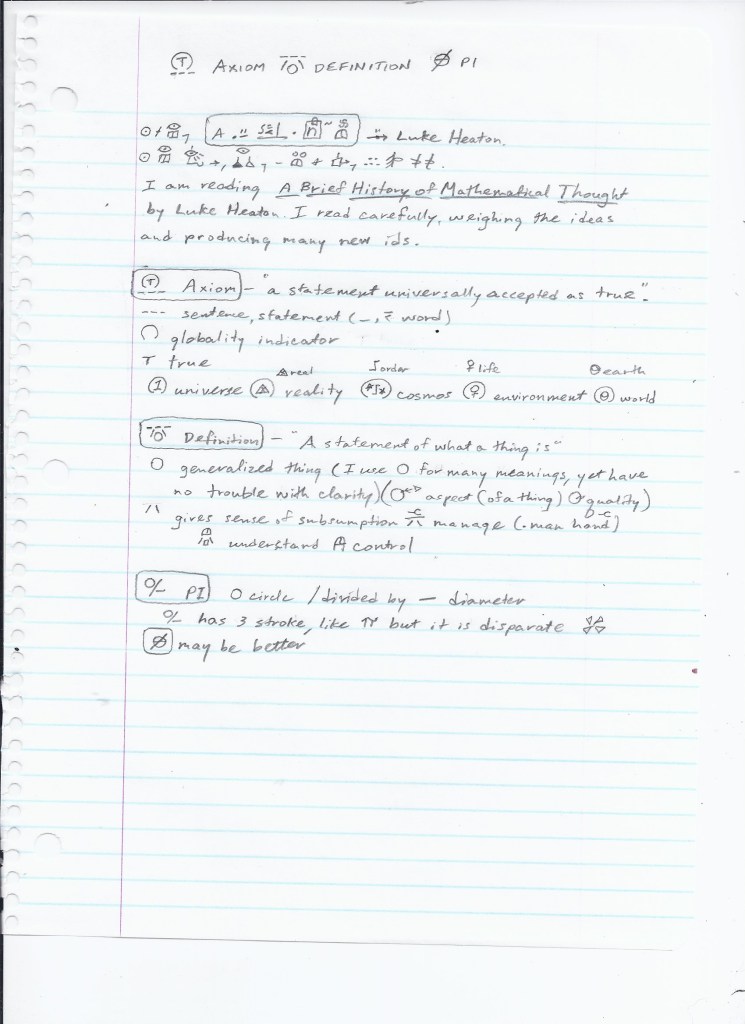 AXIOM DEFINITION PI
A Luke Heaton.
I am reading A Brief History of Mathematical Thought
by Luke Heaton. I read carefully, weighing the ideas
and producing many new ids.
Axiom - "a statement universally accepted as true".
--- sentence, statement ( word)
globality indicator
T true real order ♀ life earth
universe reality cosmos environment world
Definition - "A statement of what a thing is"
O generalized thing (I use O for many meanings, yet have
no trouble with clarity) ( aspect (of a thing) quality)
gives sense of subsumption manage ( man hand)
understand control
PI O circle / divided by — diameter
has 3 stroke, like π but it is disparate
may be better